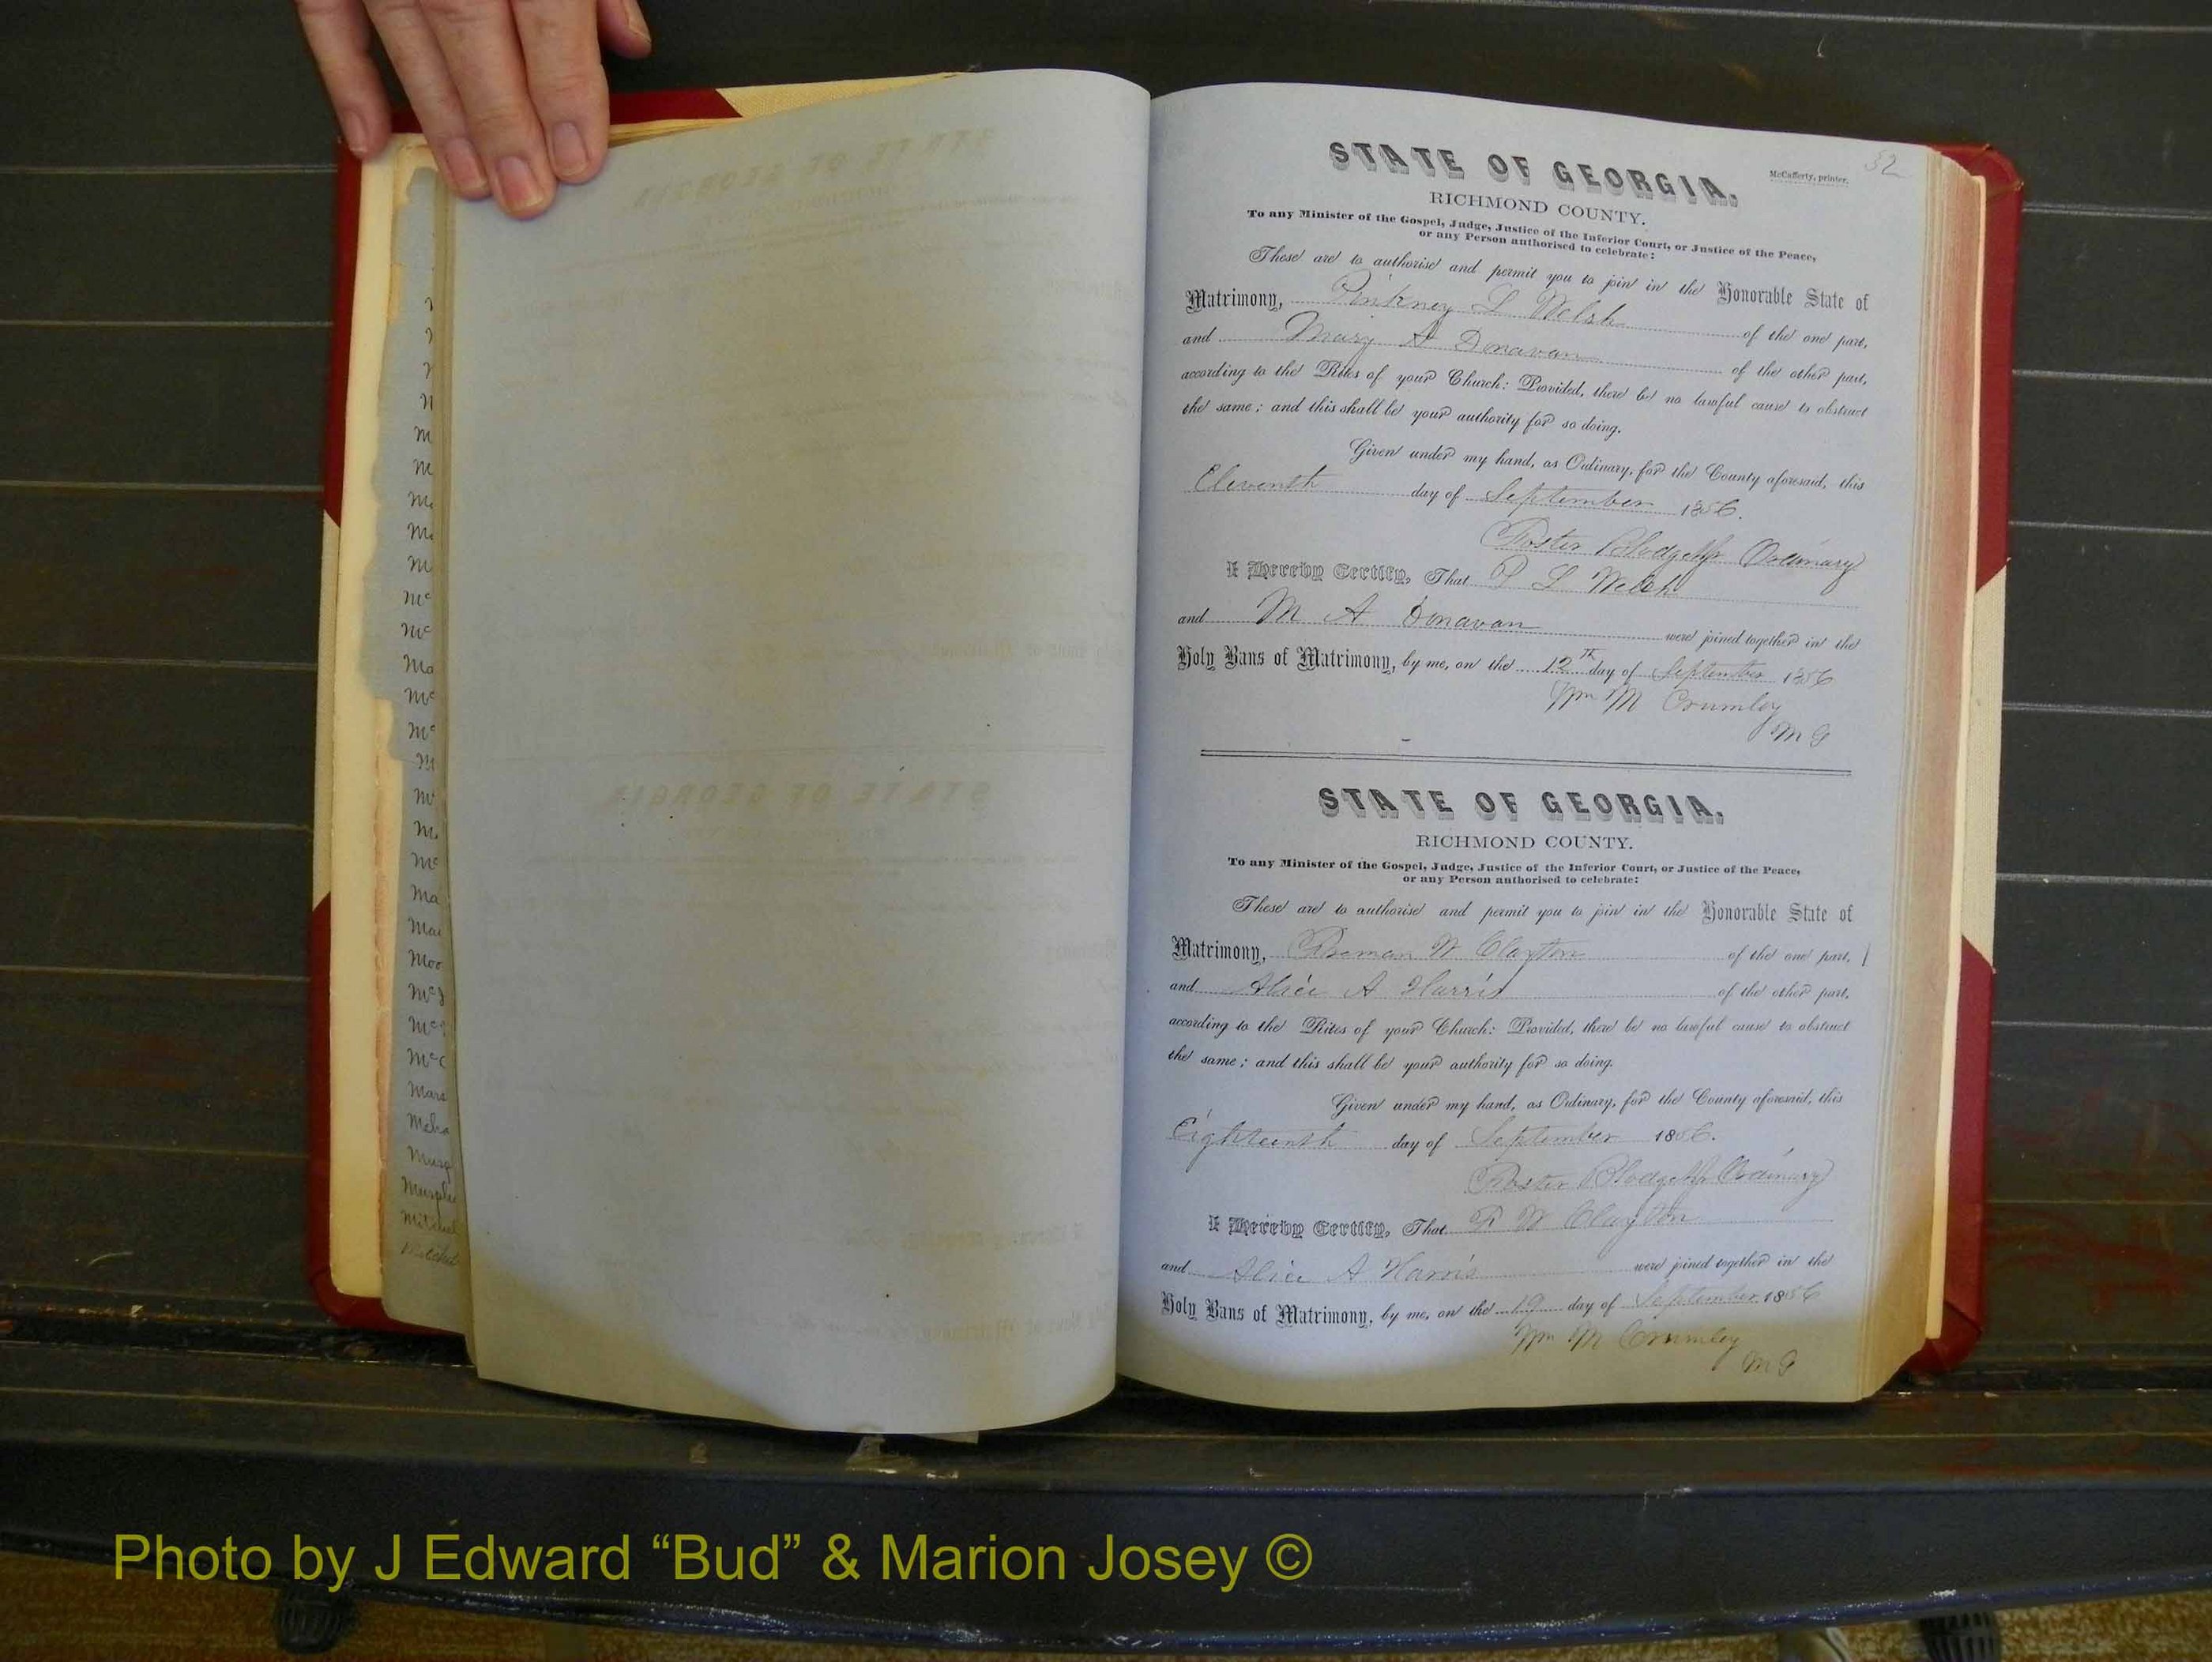 52
McCafferty, printer.
STATE OF GEORGIA,
RICHMOND COUNTY.
To any Minister of the Gospel, Judge, Justice of the Inferior Court, or Justice of the Peace,
or any Person authorised to celebrate:
These are to authorise and permit you to join in the Honorable State of
Matrimony, Pinkney L Welsh of the one part,
and Mary A Donavan of the other part,
according to the Rites of your Church: Provided, there be no lawful cause to obstruct
the same; and this shall be your authority for so doing.
Given under my hand, as Ordinary, for the County aforesaid, this
Eleventh day of September 1856.
Foster Blodget Jr Ordinary
I Hereby Certify, That P L Welsh
and M A Donavan were joined together in the
Holy Bans of Matrimony, by me, on the 12th day of September 1856
Wm M Crumley
M G
STATE OF GEORGIA,
RICHMOND COUNTY.
To any Minister of the Gospel, Judge, Justice of the Inferior Court, or Justice of the Peace,
or any Person authorised to celebrate:
These are to authorise and permit you to join in the Honorable State of
Matrimony, W Clayton of the one part,
and Alice A Harris of the other part,
according to the Rites of your Church: Provided, there be no lawful cause to obstruct
the same; and this shall be your authority for so doing.
Given under my hand, as Ordinary, for the County aforesaid, this
Eighteenth day of September 1856.
Foster Blodget Jr Ordinary
I Hereby Certify, That P W Clayton
and Alice A Harris were joined together in the
Holy Bans of Matrimony, by me, on the 19 day of September 1856
Wm M Crumley
M G
Photo by J Edward “Bud” & Marion Josey ©